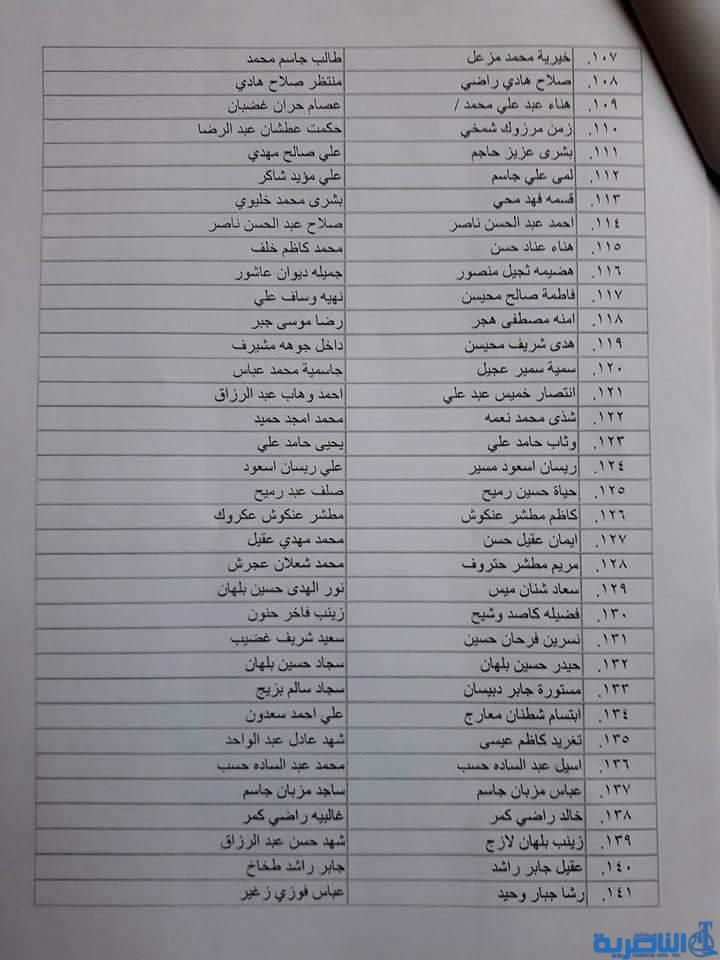 ١٠٧. خيرية محمد مزعل طالب جاسم محمد
١٠٨. صلاح هادي راضي منتظر صلاح هادي
١٠٩. هناء عبد علي محمد / عصام حران غضبان
١١٠. زمن مرزوك شمخي حكمت عطشان عبد الرضا
١١١. بشرى عزيز حاجم علي صالح مهدي
١١٢. لمى علي جاسم علي مؤيد شاكر
١١٣. قسمه فهد محي بشرى محمد خليوي
١١٤. احمد عبد الحسن ناصر صلاح عبد الحسن ناصر
١١٥. هناء عناد حسن محمد كاظم خلف
١١٦. هضيمه ثجيل منصور جميله ديوان عاشور
١١٧. فاطمة صالح محيسن نهيه وساف علي
١١٨. امنه مصطفى هجر رضا موسى جبر
١١٩. هدى شريف محيسن داخل جوهه مشيرف
١٢٠. سمية سمير عجيل جاسمية محمد عباس
١٢١. انتصار خميس عبد علي احمد وهاب عبد الرزاق
١٢٢. شذى محمد نعمه محمد امجد حميد
١٢٣. وثاب حامد علي يحيى حامد علي
١٢٤. ريسان اسعود مسير علي ريسان اسعود
١٢٥. حياة حسين رميح صلف عبد رميح
١٢٦. كاظم مطشر عنكوش مطشر عنكوش عكروك
١٢٧. ايمان عقيل حسن محمد مهدي عقيل
١٢٨. مريم مطشر حتروف محمد شعلان عجرش
١٢٩. سعاد شنان ميس نور الهدى حسين بلهان
١٣٠. فضيله كاصد وشيح زينب فاخر حنون
١٣١. نسرين فرحان حسين سعيد شريف غضيب
١٣٢. حيدر حسين بلهان سجاد حسين بلهان
١٣٣. مستورة جابر دبيسان سجاد سالم بزيج
١٣٤. ابتسام شطنان معارج علي احمد سعدون
١٣٥. تغريد كاظم عيسى شهد عادل عبد الواحد
١٣٦. اسيل عبد الساده حسب محمد عبد الساده حسب
١٣٧. عباس مزبان جاسم ساجد مزبان جاسم
١٣٨. خالد راضي كمر غالبيه راضي كمر
١٣٩. زينب بلهان لازج شهد حسن عبد الرزاق
١٤٠. عقيل جابر راشد جابر راشد طخاخ
١٤١. رشا جبار وحيد عباس فوزي زغير
الناصرية